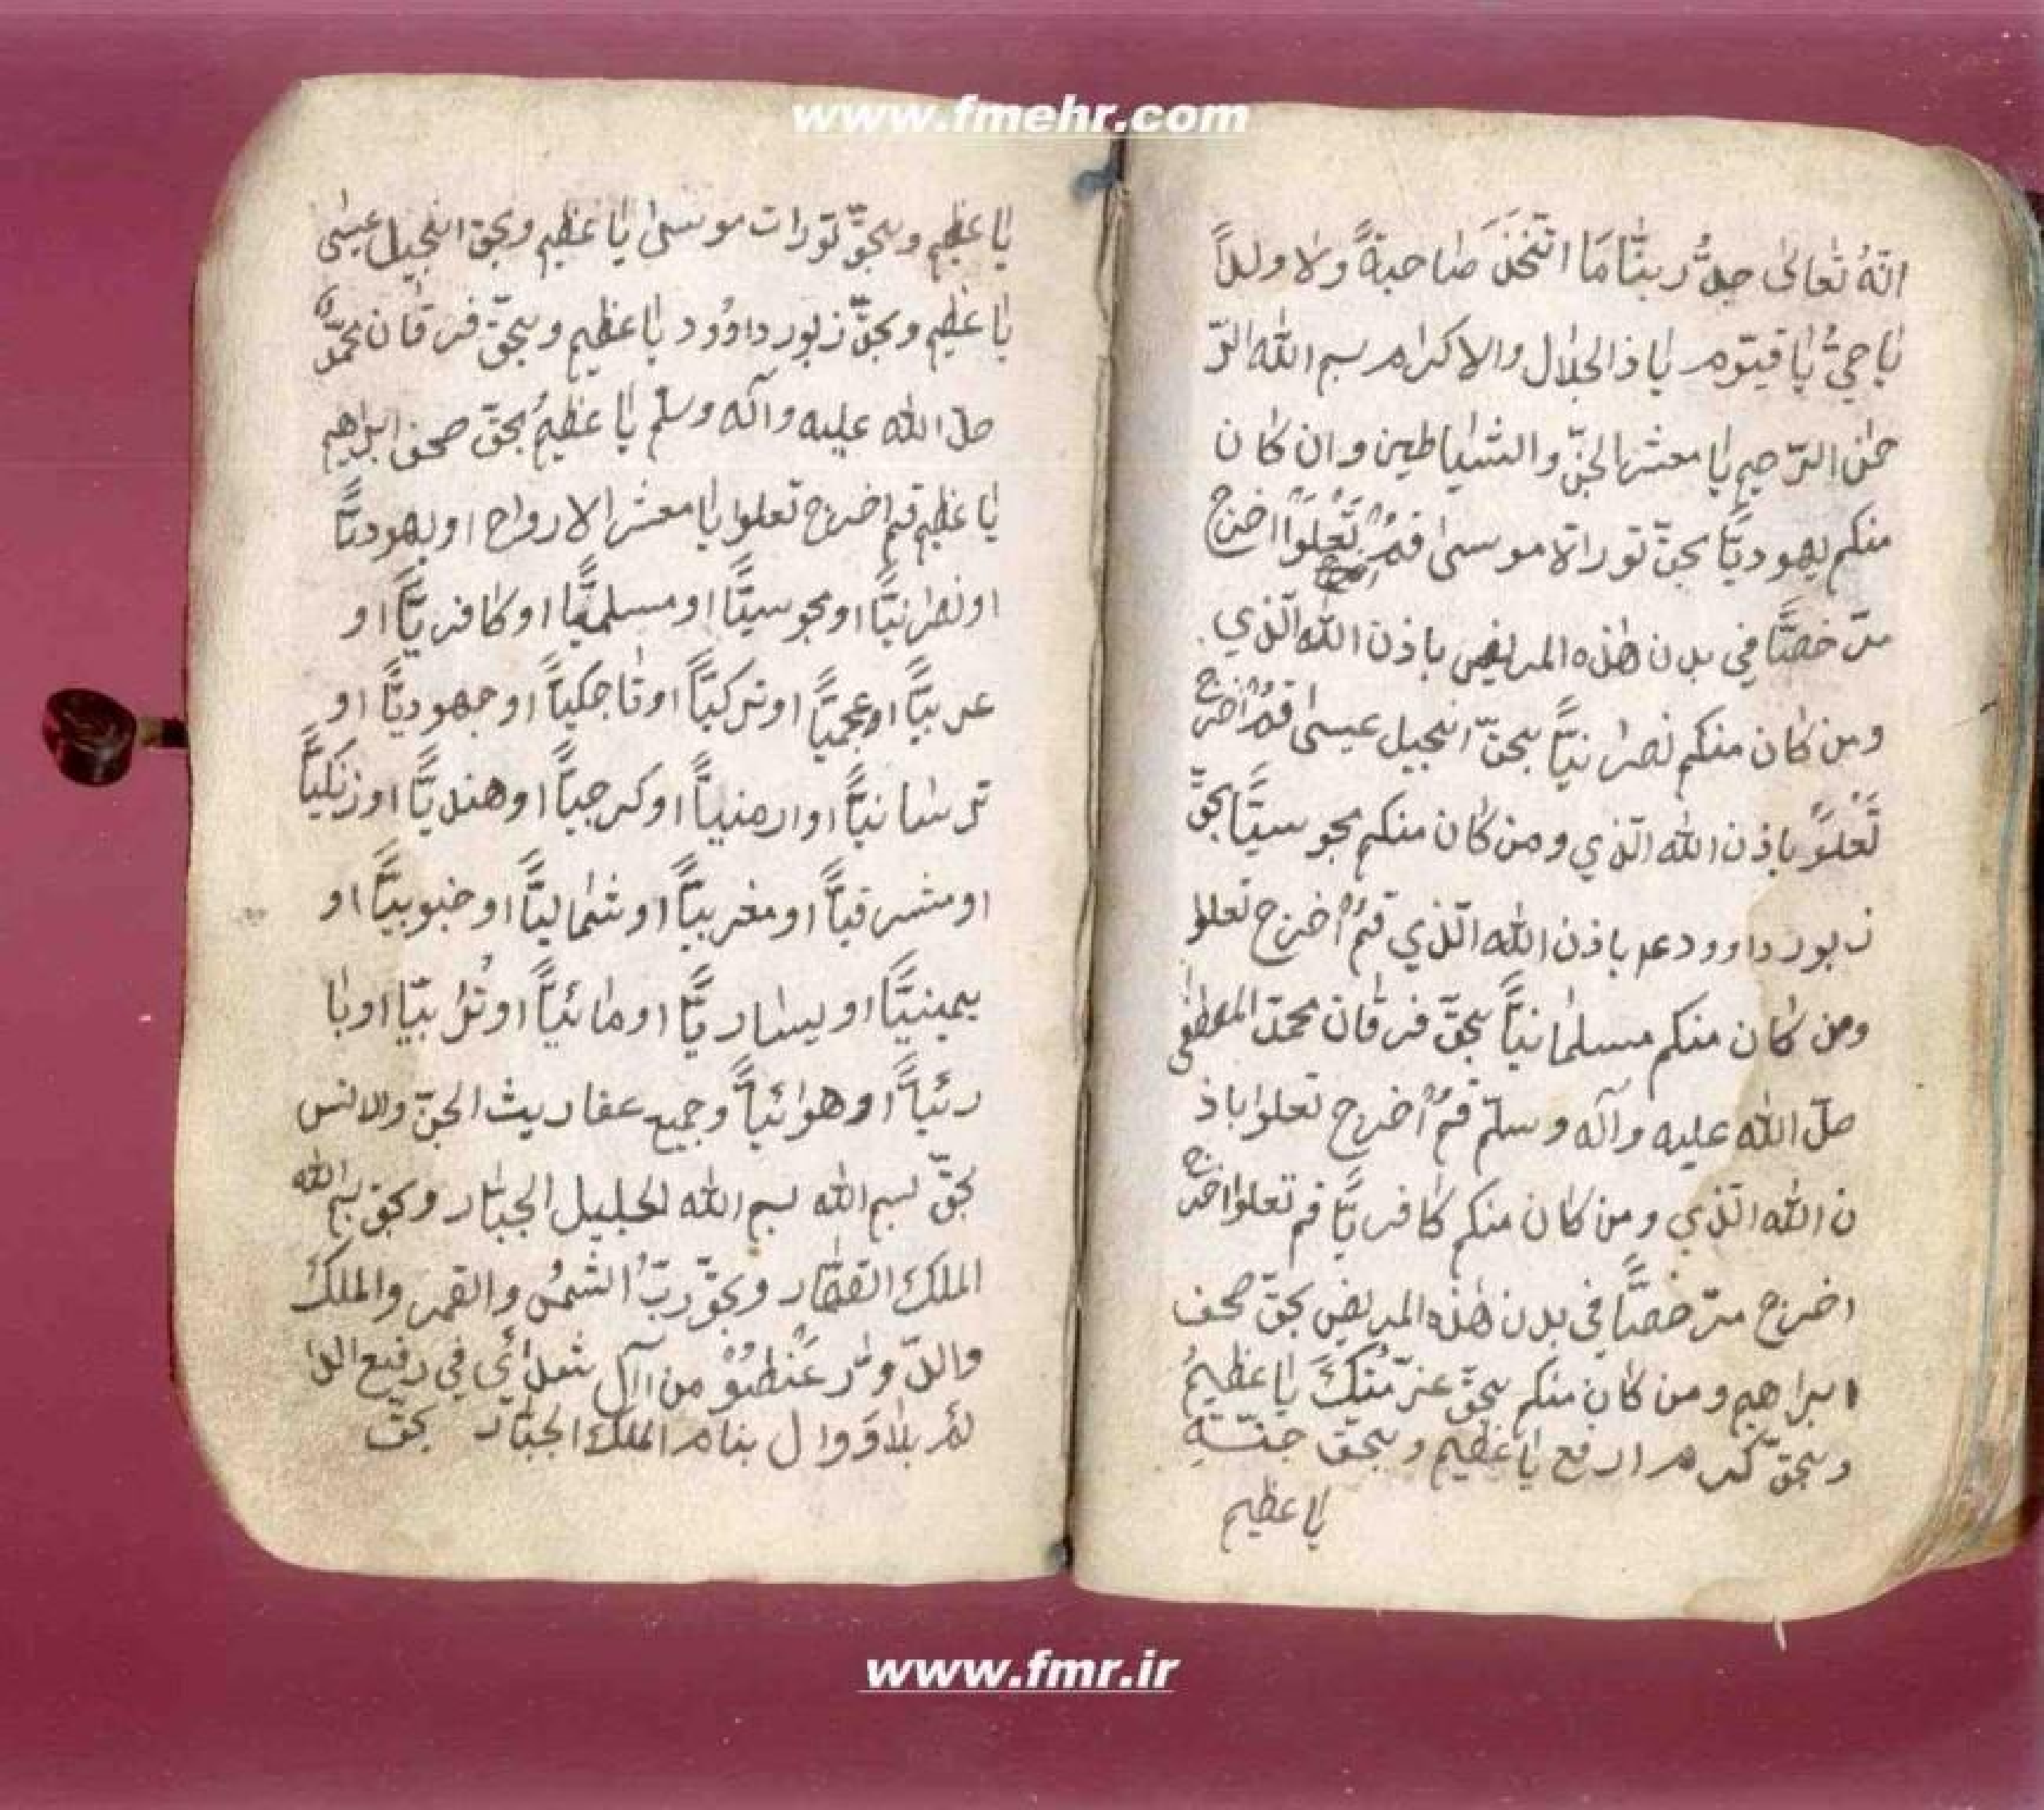 www.fmehr.com
انّهُ تعٰالیٰ جدُّ ربنّٰا مٰا اتّخَذَ صٰاحبةً ولٰا ولداً
یٰا حيُّ یٰا قیّوم یٰا ذالجلٰال والاکرام بسم الله الرّ
حمٰن الرّحیم یٰا معشر الجنّ والشیٰاطین وان کٰان
منکم یهودیّاً بحقّ توراة موسیٰ قُم تَعلَوا اخرج
مرّخصّاً في بدن هٰذه المریض باذن الله الّذي
ومن کٰان منکم نصرٰانیّاً بحقّ انجیل عیسیٰ قُم اُخرج
تَعلَوً باذن الله الّذي ومن کٰان منکم مجوسیّاً بحقّ
زبور داوود عم باذن الله الّذي قُم اُخرج تعلوا
ومن کٰان منکم مسلمٰانیّاً بحقّ فرقٰان محمّد المصطفی
صلّ الله علیه وآله وسلّم قُم اُخرج تعلوا باذ
ن الله الّذي ومن کٰان منکم کٰافریّاً قم تعلوا اخرج
اخرج مرّخصّاً في بدن هٰذه المریض بحقّ صحف
ابراهیم ومن کٰان منکم بحقّ عزّتُکَ یٰا عظیمُ
وبحقّ کرم ارفع یٰا عظیم وبحقّ جنّته
یٰا عظیم
یٰا عظیم وبحقّ تورات موسیٰ یٰا عظیم وبحق انجیل عیسٰی
یٰا عظیم وبحقّ زبور داوُود یٰا عظیم وبحقّ فرقٰان محمّد
صلّ الله علیه وآله وسلّم یٰا عظیمُ بحقّ صحف ابراهیم
یٰا عظیم قم اخرج تعلوا یٰا معشر الارواح او یهودیّاً
او نصرٰنیّاً او مجوسیّاً او مسلمیّاً او کٰافریّاً او
عربیّاً او عجمیّاً او ترکیّاً او تٰاجکیاً او جهودیّاً او
ترسٰانیّاً او ارمنیاً او کرجیاً او هندیّاً او زنکیاً
او مشرقیاً او مغربیاً او شمٰالیّاً او جنوبیّاً او
یمینیّاً او یسٰاریّاً او مٰائیاً او تُرٰابیّا او بٰا
رئیاً او هوٰائیاً وجمیع عفاریث الجنّ والانس
بحقّ بسم الله بسم الله الجلیل الجبّٰار وبحق بسم الله
الملك القهّٰار وبحقّ ربّ الشمس والقمر والملك
بنام الملك الجبّٰار بحق
www.fmr.ir